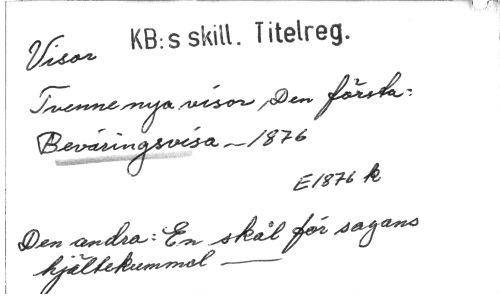 Visor KB:s skill. Titelreg.
Tvenne nya visor, Den första:
Beväringsvisa – 1876
E1876 k
Den andra: En skål för sagans
hjältekummel —